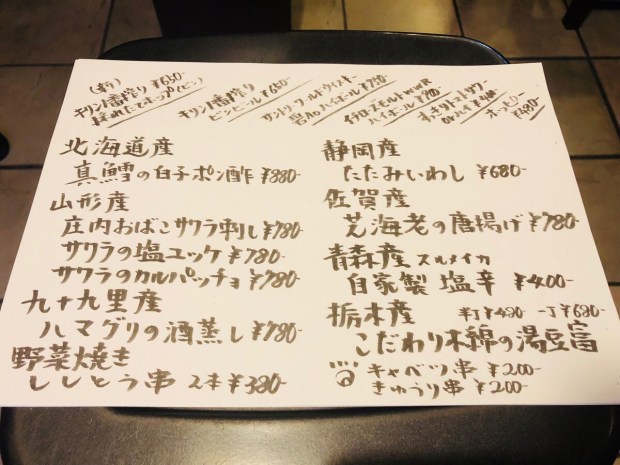 (新)
キリン一番搾り ¥650-
採れたてホップ(ビン)
キリン一番搾り
ビンビール ¥650-
サントリーワールドウイスキー
碧Aoハイボール ¥750-
イチローズモルトWWR
ハイボール ¥900-
すっきりトマトサワー
orハイ ¥400-
ホッピー
¥480-
北海道産
真鱈の白子ポン酢 ¥880-
山形産
庄内おばこサクラ刺し ¥780-
サクラの塩ユッケ ¥780-
サクラのカルパッチョ ¥780-
九十九里産
ハマグリの酒蒸し ¥780-
野菜焼き
ししとう串 2本 ¥380-
静岡産
たたみいわし ¥680-
佐賀産
芝海老の唐揚げ ¥780-
青森産 スルメイカ
自家製 塩辛 ¥400-
栃木産 半丁 ¥480- 一丁 ¥680-
こだわり木綿の湯豆富
キャベツ串 ¥200-
きゅうり串 ¥200-